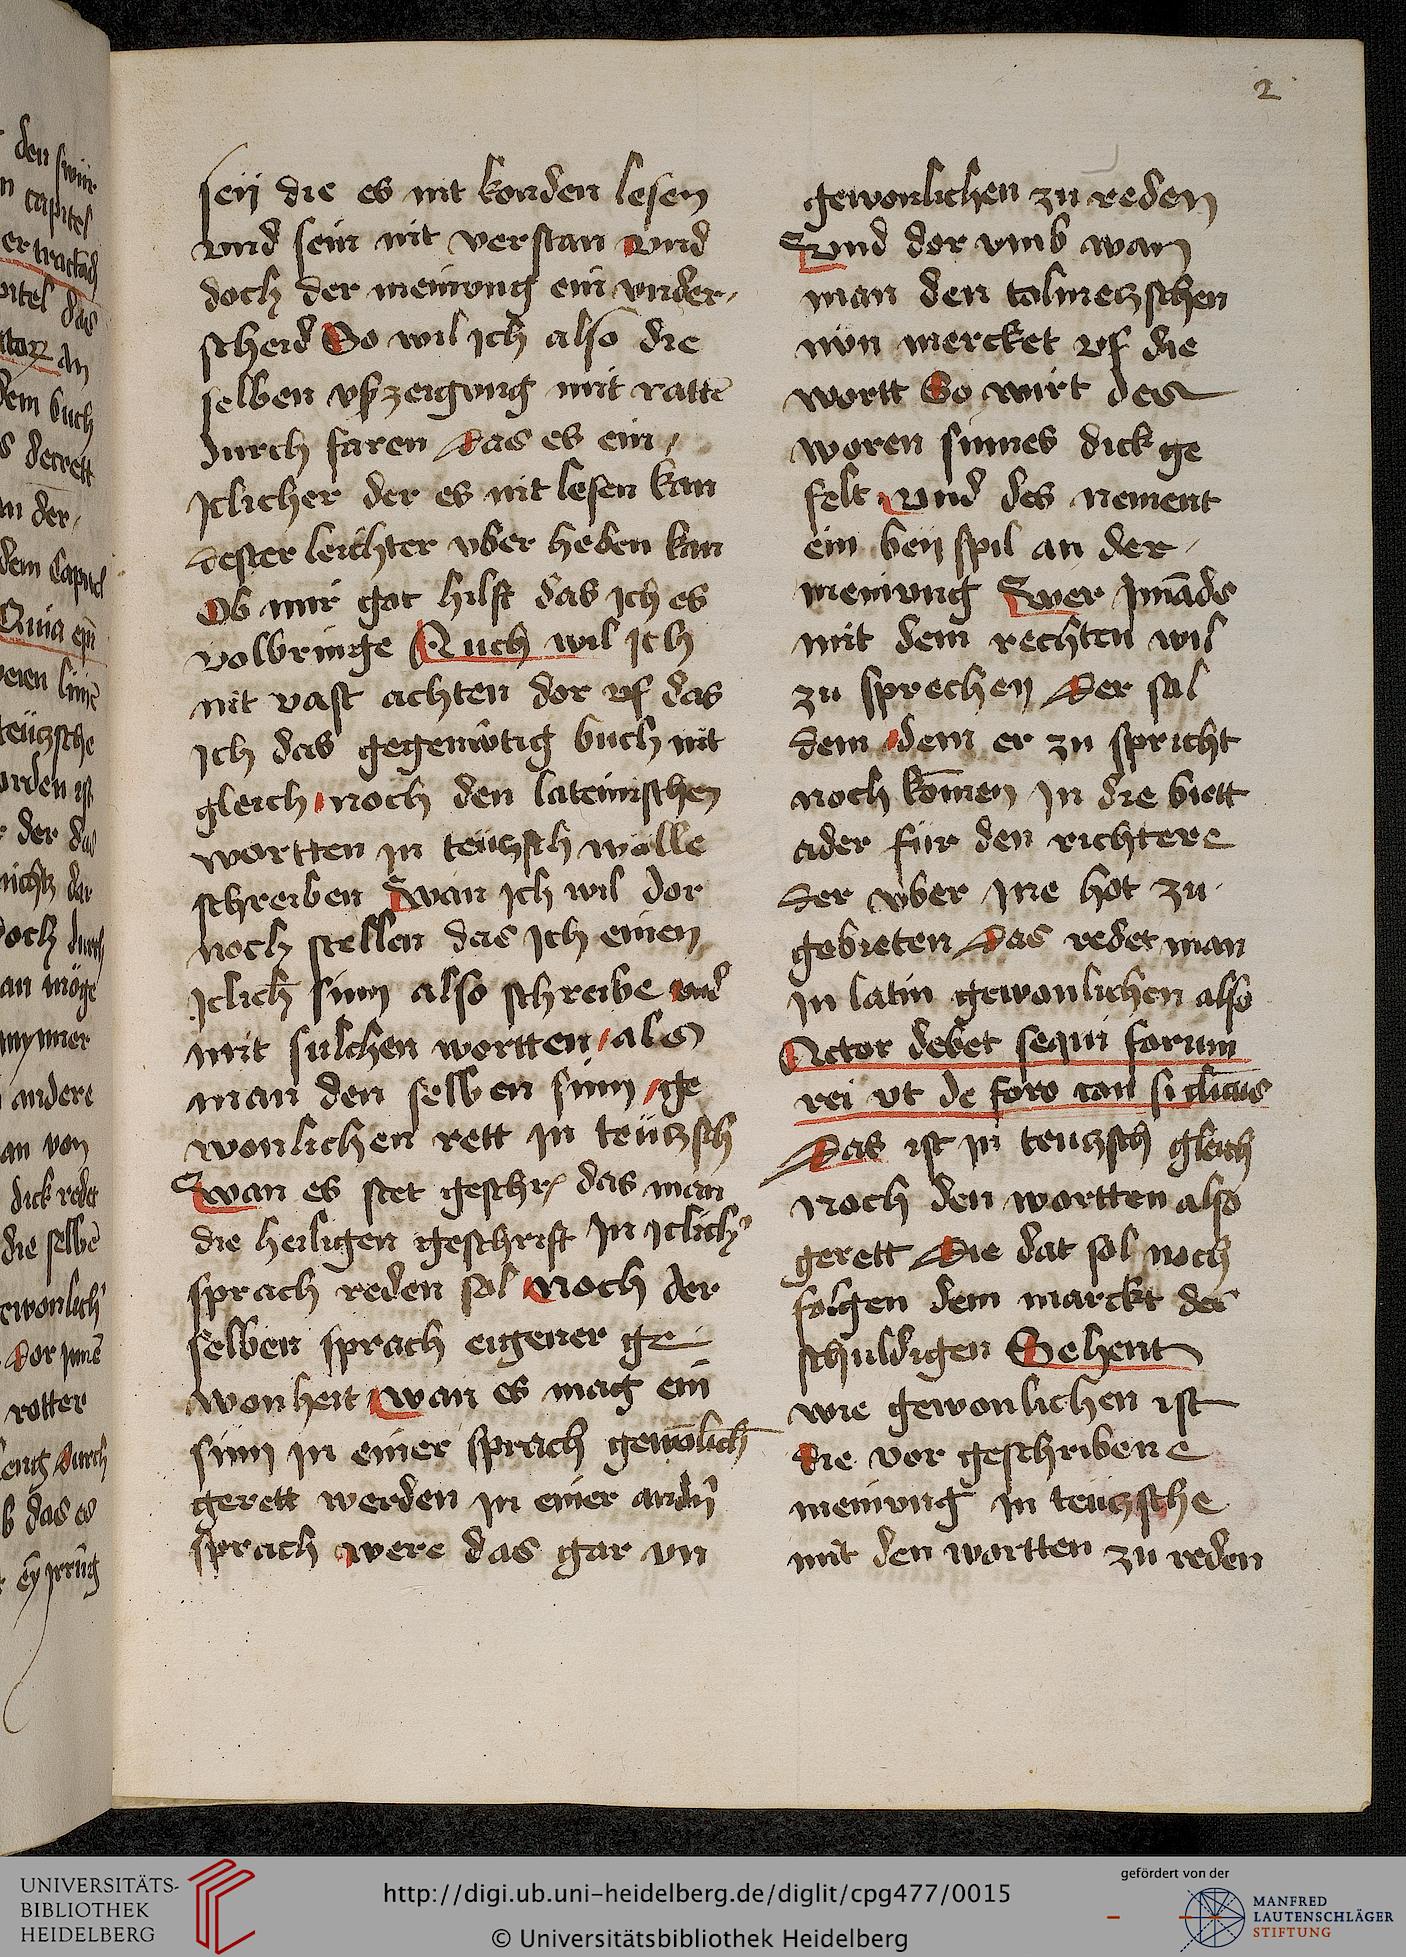 2
seÿ die es nit konden lesen
vnd sein nit verstan vnd
doch der meinvng ein vnder,
scheid So wil ich also die
selben vßzeigvng mit rattē
durch faren das es ein,
Jclicher der es nit lesen kan
dester leichter vber heben kan
Ob mir got hilft das ich es
volbringe Auch wil ich
nit vast achten dor vf das
ich das gegenwͤtig buch nit
gleich noch den lateinischen
wortten in teützsch wölle
schreiben wan ich wil dor
noch stellen das ich einen
Jclich̄ sinn also schreibe vnd
mit sulchen wortten als
man den selben sinn ge
wonlichen rett in teützsch
wan es stet geschr das man
die heiligen geschrift in iclich'
sprach reden sol noch der
selben sprach eigener ge
wonheit wan es mag ein
sinn in einer sprach gewōlich
gerett werden in einer andn̄
sprach were das gar vn
gewonlichen zu reden
vnd dor vmb wan
man den tolmetzschen
nün mercket vf die
wortt So wirt des
woren sinnes dick ge
felt vnd des nement
ein beÿ spil an der
meinvng wer Jmāds
mit dem rechten wil
zu sprechen der sal
dem dem er zu spricht
noch kōmen in die biett
ader für den richtere
der vber ine hot zu
gebieten das redet man
in latin gewonlichen also
Actor debet sequi forum
rei vt de foro con si clicus
das ist in teutzsch gleich
noch den wortten also
gerett die dat sol noch
folgen dem marckt der
schuldigen Sehent
wie gewonlichen ist
die vor geschribene
meinvng in teützsche
mit den wortten zu reden
UNIVERSITÄTS-
BIBLIOTHEK
HEIDELBERG
http://digi.ub.uni-heidelberg.de/diglit/cpg477/0015
© Universitätsbibliothek Heidelberg
gefördert von der
MANFRED
LAUTENSCHLÄGER
STIFTUNG